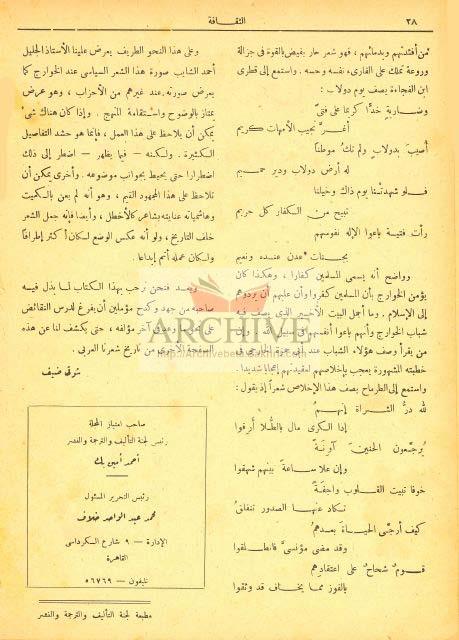 ٢٨
الثقافة
من أفئدتهم وبدمائهم، فهو شعر حار يفيض بالقوة فى جزالة
وروعة تملك على القارىء نفسه وحسه. واستمع إلى قطرى
ابن الفجاءة يصف يوم دولاب:
وضاربةٍ خدًّا كريما على فتىً
أغرَّ نجيب الأمهات كريم
أصيبَ بدولاب ولم تكُ موطنا
له أرض دولاب ودير حميم
فلو شهدتنا يوم ذاك وخيلنا
تبيح من الكفار كل حريم
رأت فتية باعوا الإله نفوسهم
بجنات عدن عنده ونعيم
وواضح أنه يسمى المسلمين كفارا، وهكذا كان
يؤمن الخوارج بأن المسلمين كفروا وأن عليهم أن يردوهم
إلى الإسلام. وما أجمل البيت الأخير الذى يصف فيه
شباب الخوارج وأنهم باعوا أنفسهم فى سبيل الله، وإن
من يقرأ وصف هؤلاء الشباب عند أبى حمزة الخارجى فى
خطبته المشهورة يعجب بإخلاصهم لعقيدتهم إعجابا شديدا.
واستمع إلى الطرماح يصف هذا الإخلاص شعراً إذ يقول:
لله درُّ الشراة إنهمُ
إذا الكرى مال بالطُّلا أرِقوا
يُرجّعون الحنين آونةً
وإن علا ساعةً بهم شهقوا
خوفا تبيت القلوب واجفةً
تكاد عنها الصدور تنفلق
كيف أرجّى الحياة بعدهمُ
وقد مضى مؤنسىَّ فانطلقوا
قومٌ شحاحٌ على اعتقادهم
بالفوز مما يخاف قد وثقوا
وعلى هذا النحو الطريف يعرض علينا الأستاذ الجليل
أحمد الشايب صورة هذا الشعر السياسى عند الخوارج كما
يعرض صورته عند غيرهم من الأحزاب، وهو عرض
يمتاز بالوضوح واستقامة المنهج. وإذا كان هناك شىء
يمكن أن يلاحظ على هذا العمل، فإنما هو حشد التفاصيل
الكثيرة. ولكنه — فيما يظهر — اضطر إلى ذلك
اضطرارا حتى يحيط بجوانب موضوعه. وأخرى يمكن أن
تلاحظ على هذا المجهود القيم، وهو أنه لم يعن بالكميت
وهاشمياته عنايته بشاعر كالأخطل، وأيضا فإنه جعل الشعر
خلف التاريخ، ولو أنه عكس الوضع لكان أكثر إطرافا
ولكان عمله أتم إبداعا.
وبعد فنحن نرحب بهذا الكتاب لما بذل فيه
صاحبه من جهد وكدح مؤملين أن يفرغ لدرس النقائض
الصفحة الأخرى من تاريخ شعرنا العربى.
شوقى ضيف
صاحب امتياز المجلة
رئيس لجنة التأليف والترجمة والنشر
أحمد أمين بك
رئيس التحرير المسئول
محمد عبد الواحد خلاف
الإدارة — ٩ شارع الكرداسى
القاهرة
تليفون — ٥٦٧٦٩
مطبعة لجنة التأليف والترجمة والنشر
ARCHIVE